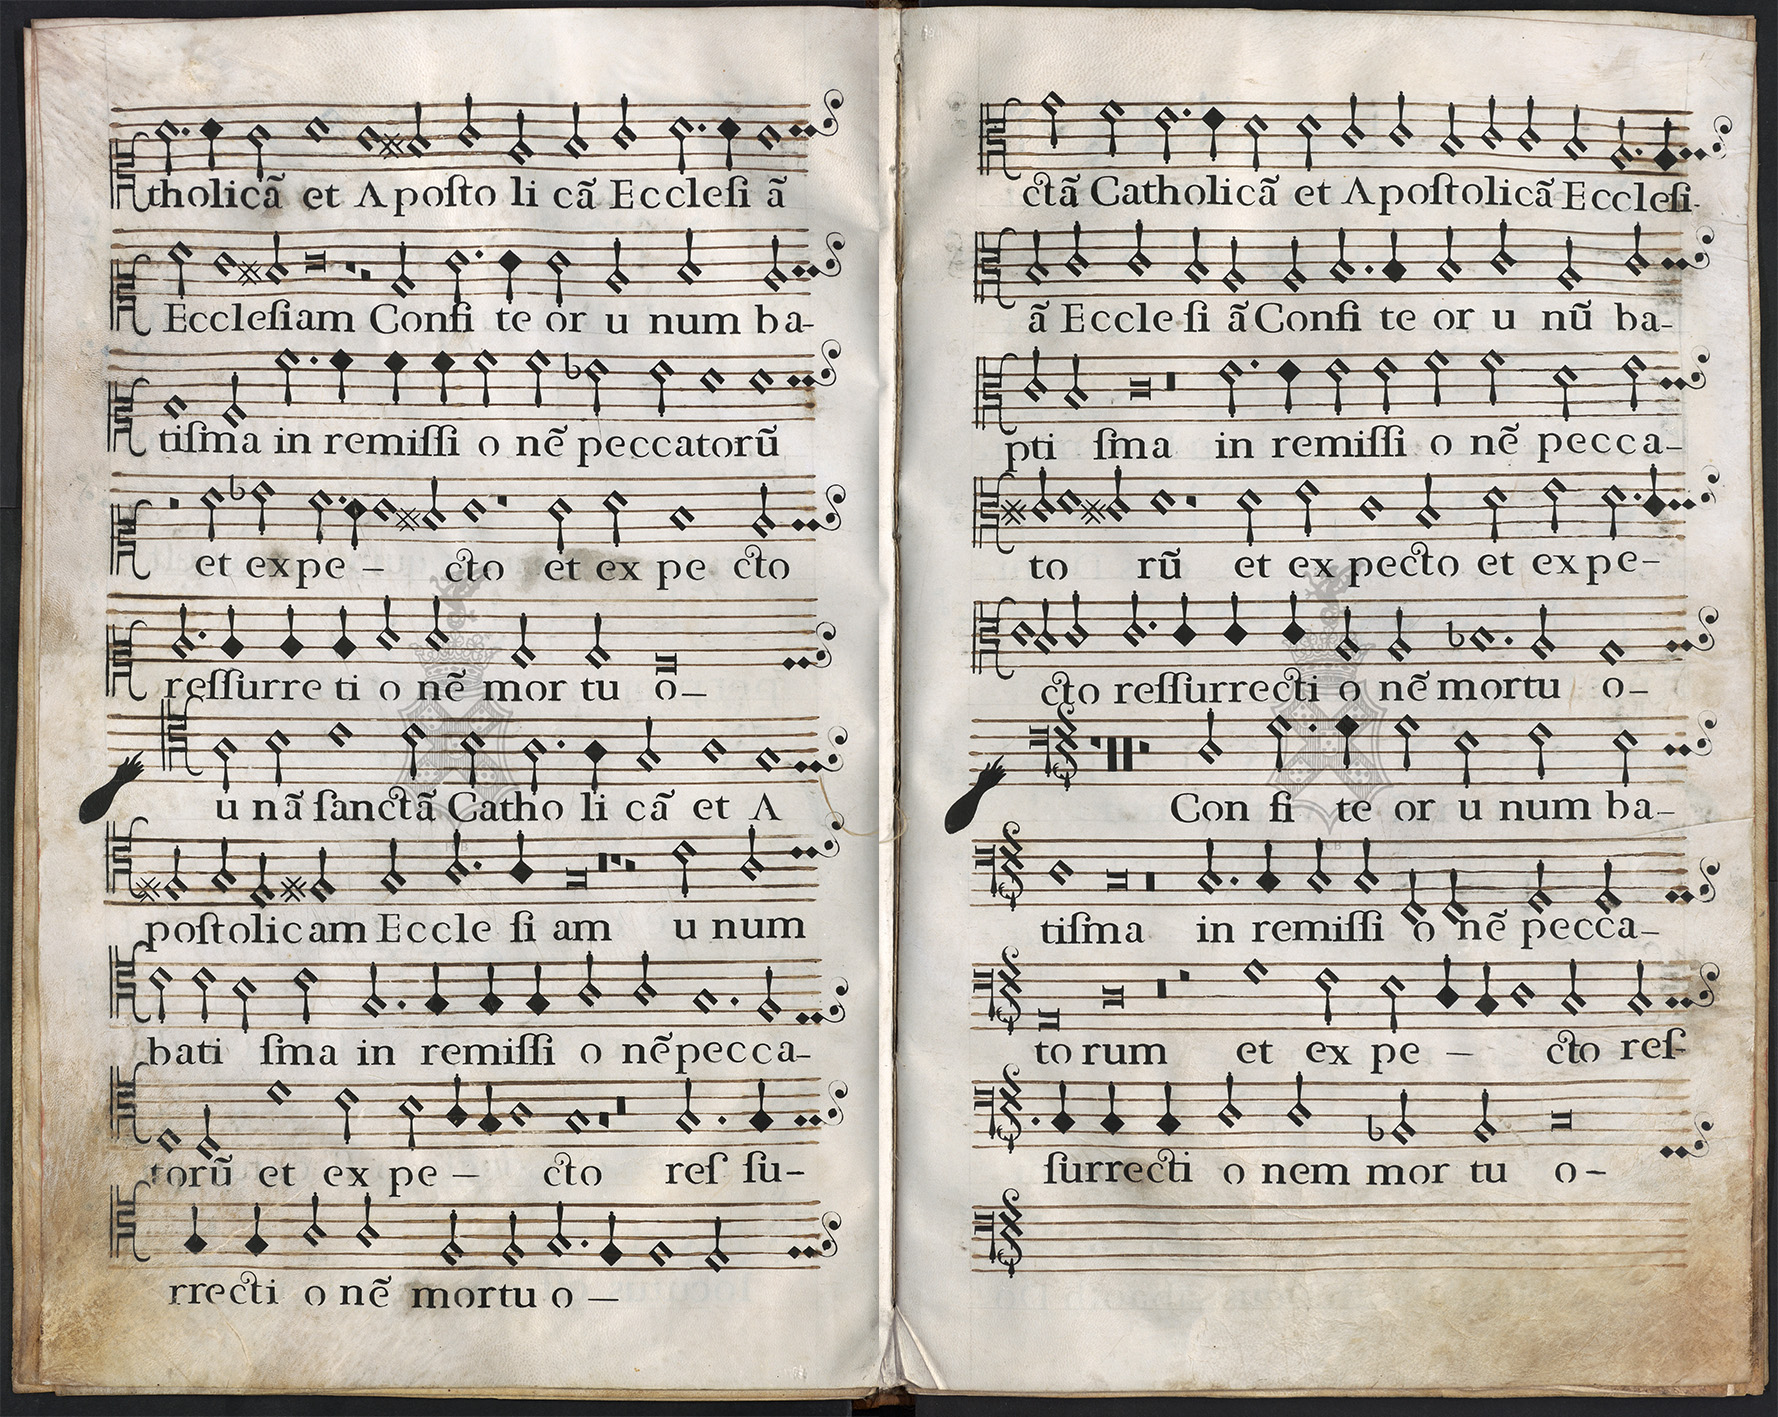 tholicã et Apoſto li cã Eccleſi ã
Eccleſiam Confi te or u num ba-
tiſma in remiſſi o nẽ peccatorũ
et expe – cto et ex pe cto
reſſurre ti o nẽ mor tu o –
u nã ſanctã Catho li cã et A
poſtolicam Eccle ſi am u num
bati ſma in remiſſi o nẽ pecca-
torũ et ex pe – cto reſ ſu-
rrecti o nẽ mortu o –
ctã Catholicã et Apoſtolicã Eccleſi-
ã Eccle ſi ã Confi te or u nũ ba-
pti ſma in remiſſi o nẽ pecca-
to rũ et ex pecto et ex pe-
cto reſſurrecti o nẽ mortu o-
Con fi te or u num ba-
tiſma in remiſſi o nẽ pecca-
to rum et ex pe – cto reſ-
ſurrecti o nem mor tu o-